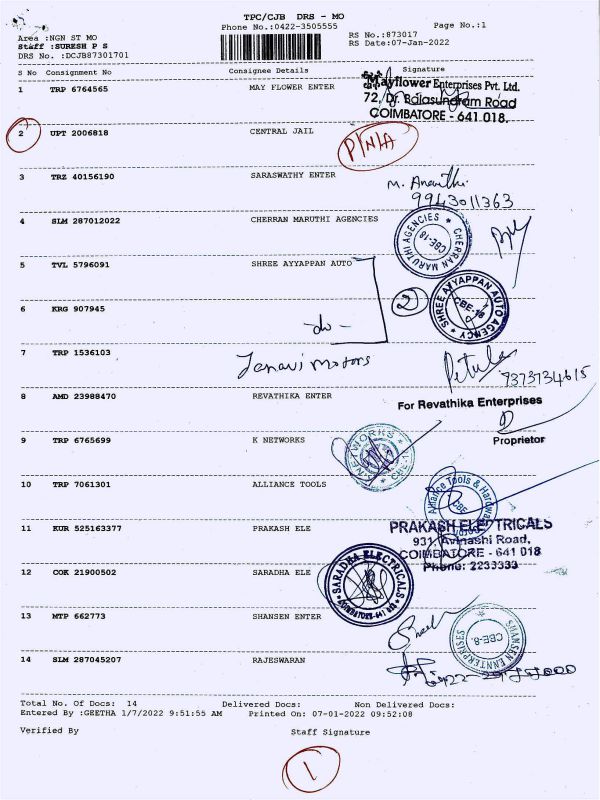 TPC/CJB DRS - MO
Phone No.:0422-3505555 Page No.:1
Area :NGN ST MO RS No.:873017
Staff :SURESH P S RS Date:07-Jan-2022
DRS No. :DCJB87301701
S No Consignment No Consignee Details Signature
1 TRP 6764565 MAY FLOWER ENTER
Mayflower Enterprises Pvt. Ltd.
72, Dr. Balasundram Road
COIMBATORE - 641 018.
2 UPT 2006818 CENTRAL JAIL P/N/A
3 TRZ 40156190 SARASWATHY ENTER M. Ananthi
9943011363
4 SLM 287012022 CHERRAN MARUTHI AGENCIES
CHERRAN MARUTHI AGENCIES CBE-18
5 TVL 5796091 SHREE AYYAPPAN AUTO
2 SHREE AYYAPPAN AUTO AGENCY CBE-18
6 KRG 907945 -do-
7 TRP 1536103 Janavi Motors Petula
7373734615
8 AMD 23988470 REVATHIKA ENTER For Revathika Enterprises
Proprietor
9 TRP 6765699 K NETWORKS
NETWORKS
10 TRP 7061301 ALLIANCE TOOLS
Alliance Tools & Hardware CBE
11 KUR 525163377 PRAKASH ELE PRAKASH ELECTRICALS
931, Avinashi Road,
COIMBATORE - 641 018
Phone: 2233333
12 COK 21900502 SARADHA ELE
SARADHA ELECTRICALS
13 MTP 662773 SHANSEN ENTER
SHANSEN ENTERPRISES CBE-8.
14 SLM 287045207 RAJESWARAN
Total No. Of Docs: 14 Delivered Docs: Non Delivered Docs:
Entered By :GEETHA 1/7/2022 9:51:55 AM Printed On: 07-01-2022 09:52:08
Verified By Staff Signature
1